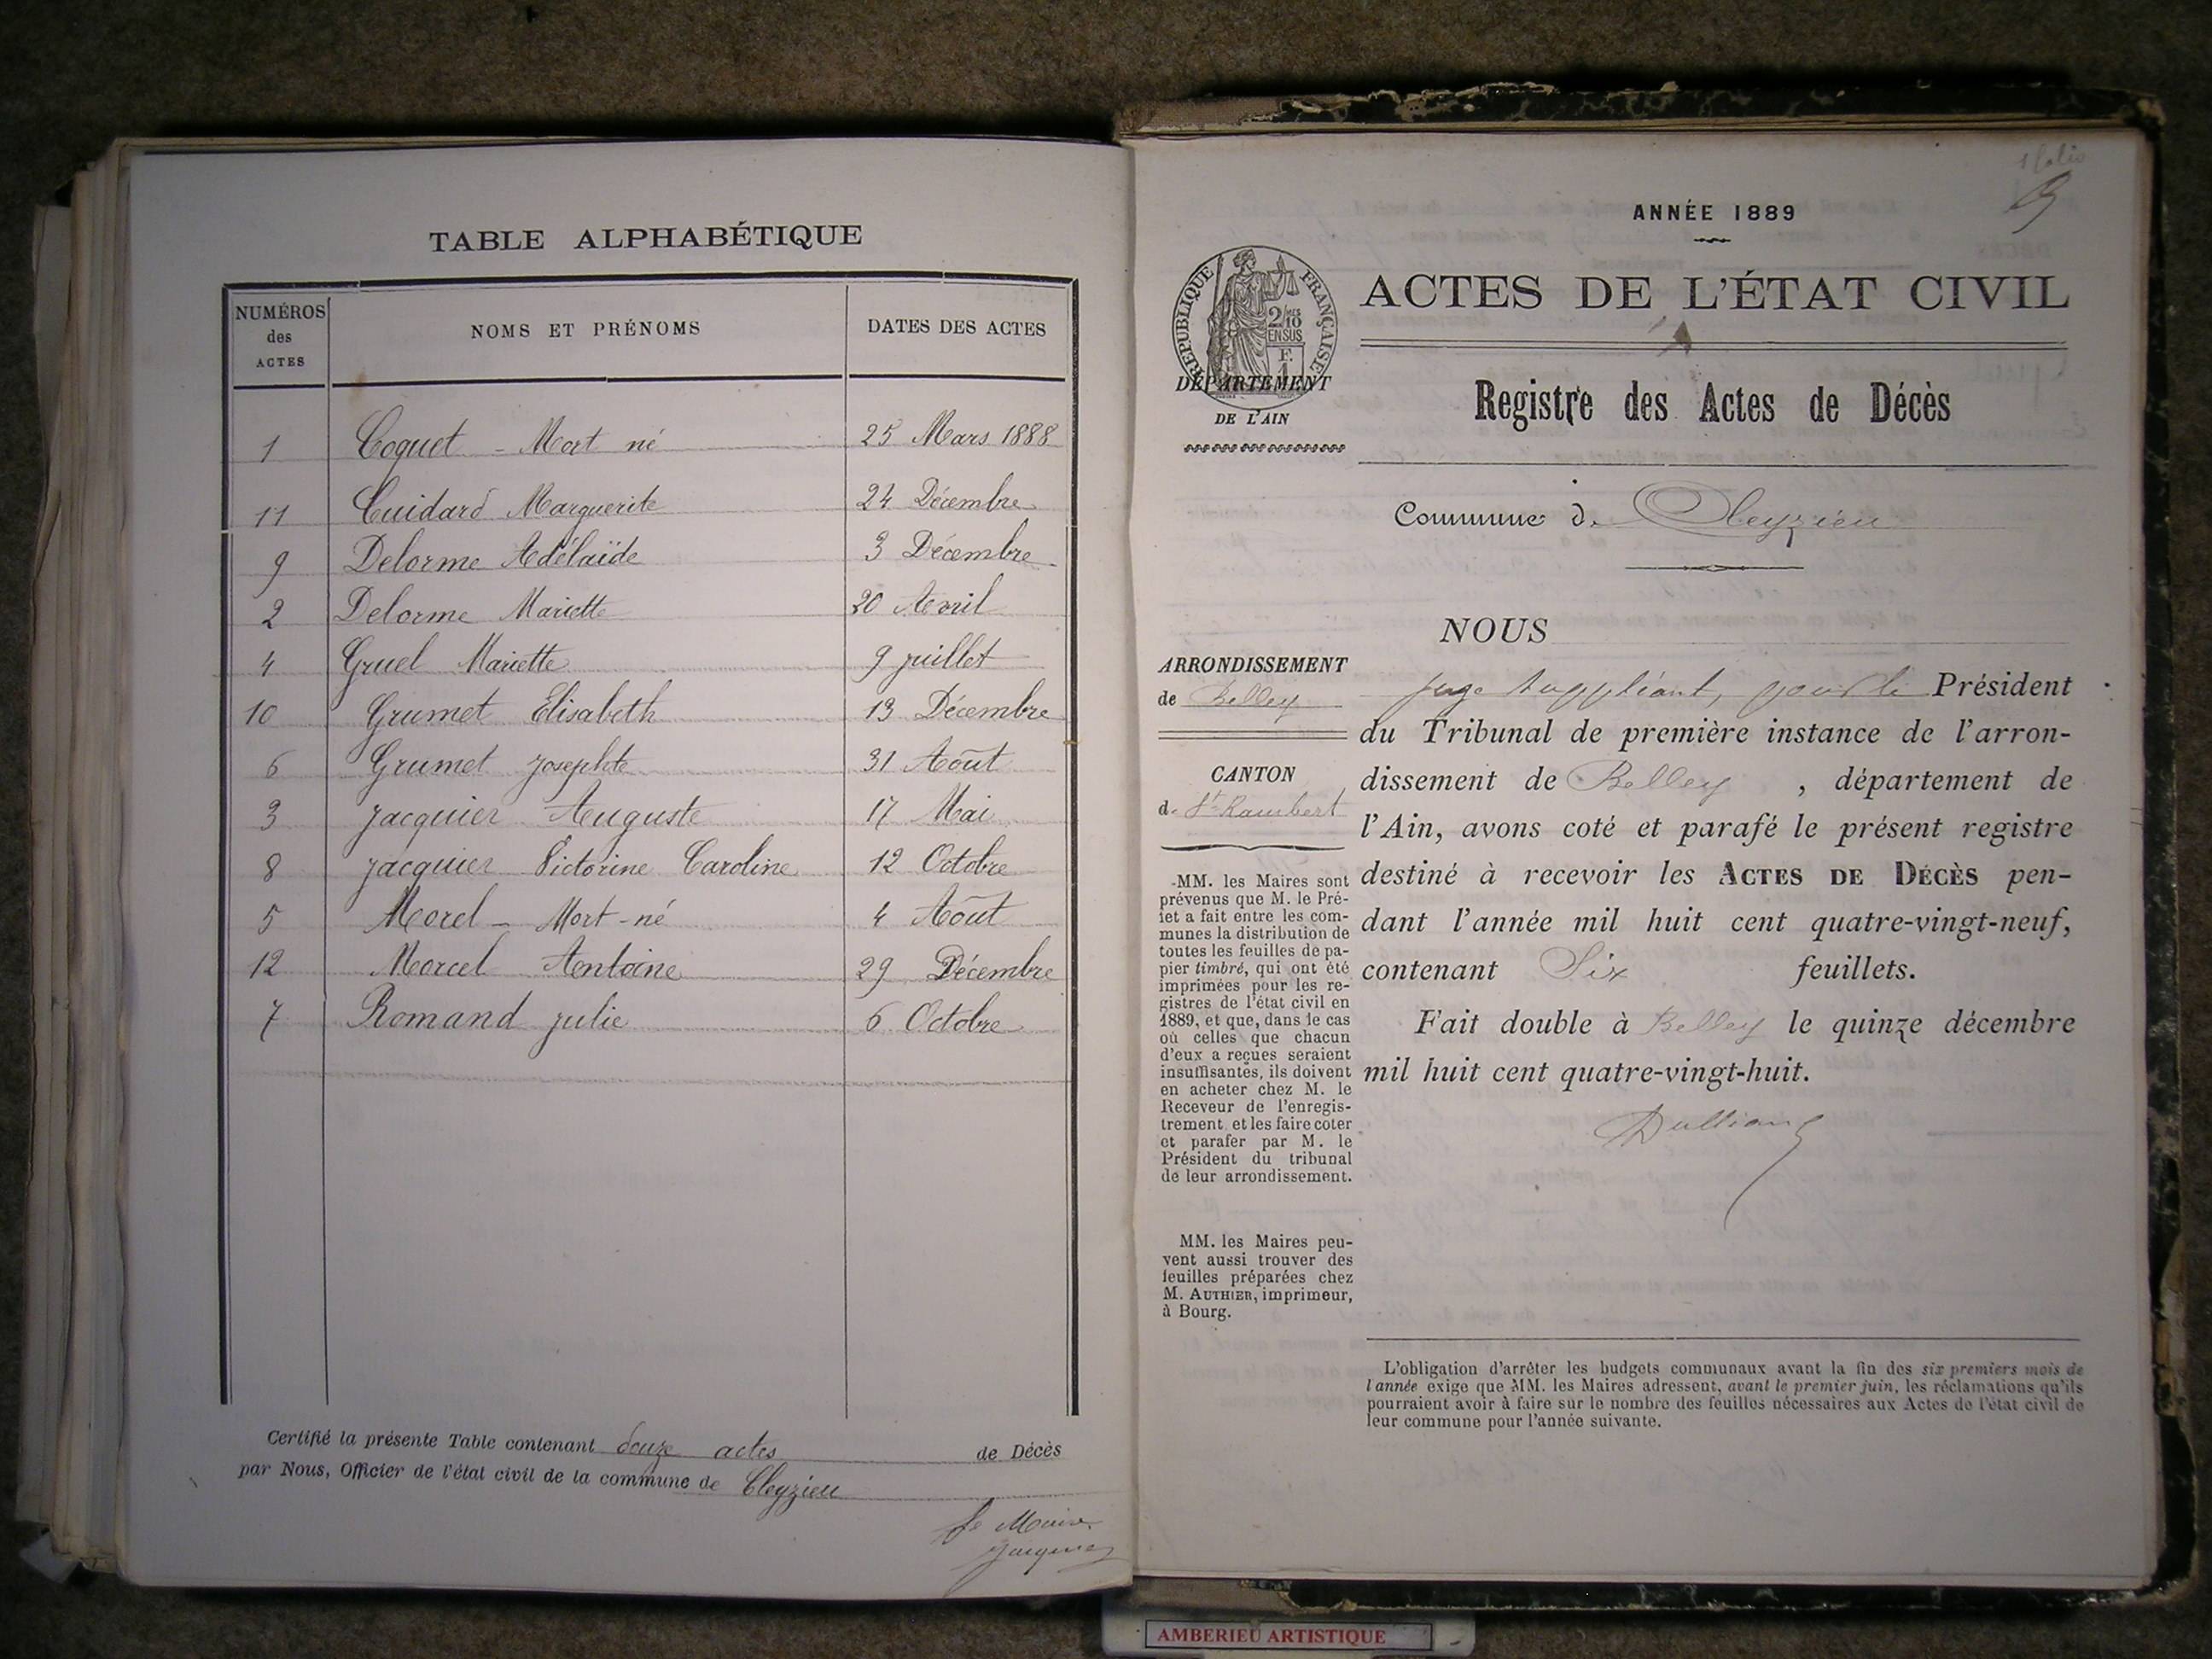 TABLE ALPHABÉTIQUE
NUMÉROS des ACTES | NOMS ET PRÉNOMS | DATES DES ACTES
1 Coquet - Mort né 25 Mars 1888
11 Cuidard Marguerite 24 Décembre
9 Delorme Adélaïde 3 Décembre
2 Delorme Mariette 20 Avril
4 Gruel Mariette 9 juillet
10 Grumet Elisabeth 13 Décembre
6 Grumet josephte 31 Août
3 jacquier Auguste 17 Mai
8 jacquier Victorine Caroline 12 Octobre
5 Morel - Mort-né 4 Août
12 Morcel Antoine 29 Décembre
7 Romand julie 6 Octobre
Certifié la présente Table contenant douze actes de Décès
par Nous, Officier de l'état civil de la commune de Cleyzieu
Le Maire
1 folio
ANNÉE 1889
RÉPUBLIQUE FRANÇAISE
2/10
EN SUS
DÉPARTEMENT
DE L'AIN
ACTES DE L'ÉTAT CIVIL
Registre des Actes de Décès
Commune de Cleyzieu
ARRONDISSEMENT
de Belley
CANTON
de St Rambert
MM. les Maires sont
prévenus que M. le Pré-
fet a fait entre les com-
munes la distribution de
toutes les feuilles de pa-
pier timbré, qui ont été
imprimées pour les re-
gistres de l'état civil en
1889, et que, dans le cas
où celles que chacun
d'eux a reçues seraient
insuffisantes, ils doivent
en acheter chez M. le
Receveur de l'enregis-
trement et les faire coter
et parafer par M. le
Président du tribunal
de leur arrondissement.
MM. les Maires peu-
vent aussi trouver des
feuilles préparées chez
M. AUTHIER, imprimeur,
à Bourg.
NOUS
juge suppléant, pour le Président
du Tribunal de première instance de l'arron-
dissement de Belley, département de
l'Ain, avons coté et parafé le présent registre
destiné à recevoir les ACTES DE DÉCÈS pen-
dant l'année mil huit cent quatre-vingt-neuf,
contenant Six feuillets.
Fait double à Belley le quinze décembre
mil huit cent quatre-vingt-huit.
L'obligation d'arrêter les budgets communaux avant la fin des six premiers mois de
l'année exige que MM. les Maires adressent, avant le premier juin, les réclamations qu'ils
pourraient avoir à faire sur le nombre des feuilles nécessaires aux Actes de l'état civil de
leur commune pour l'année suivante.
AMBERIEU ARTISTIQUE